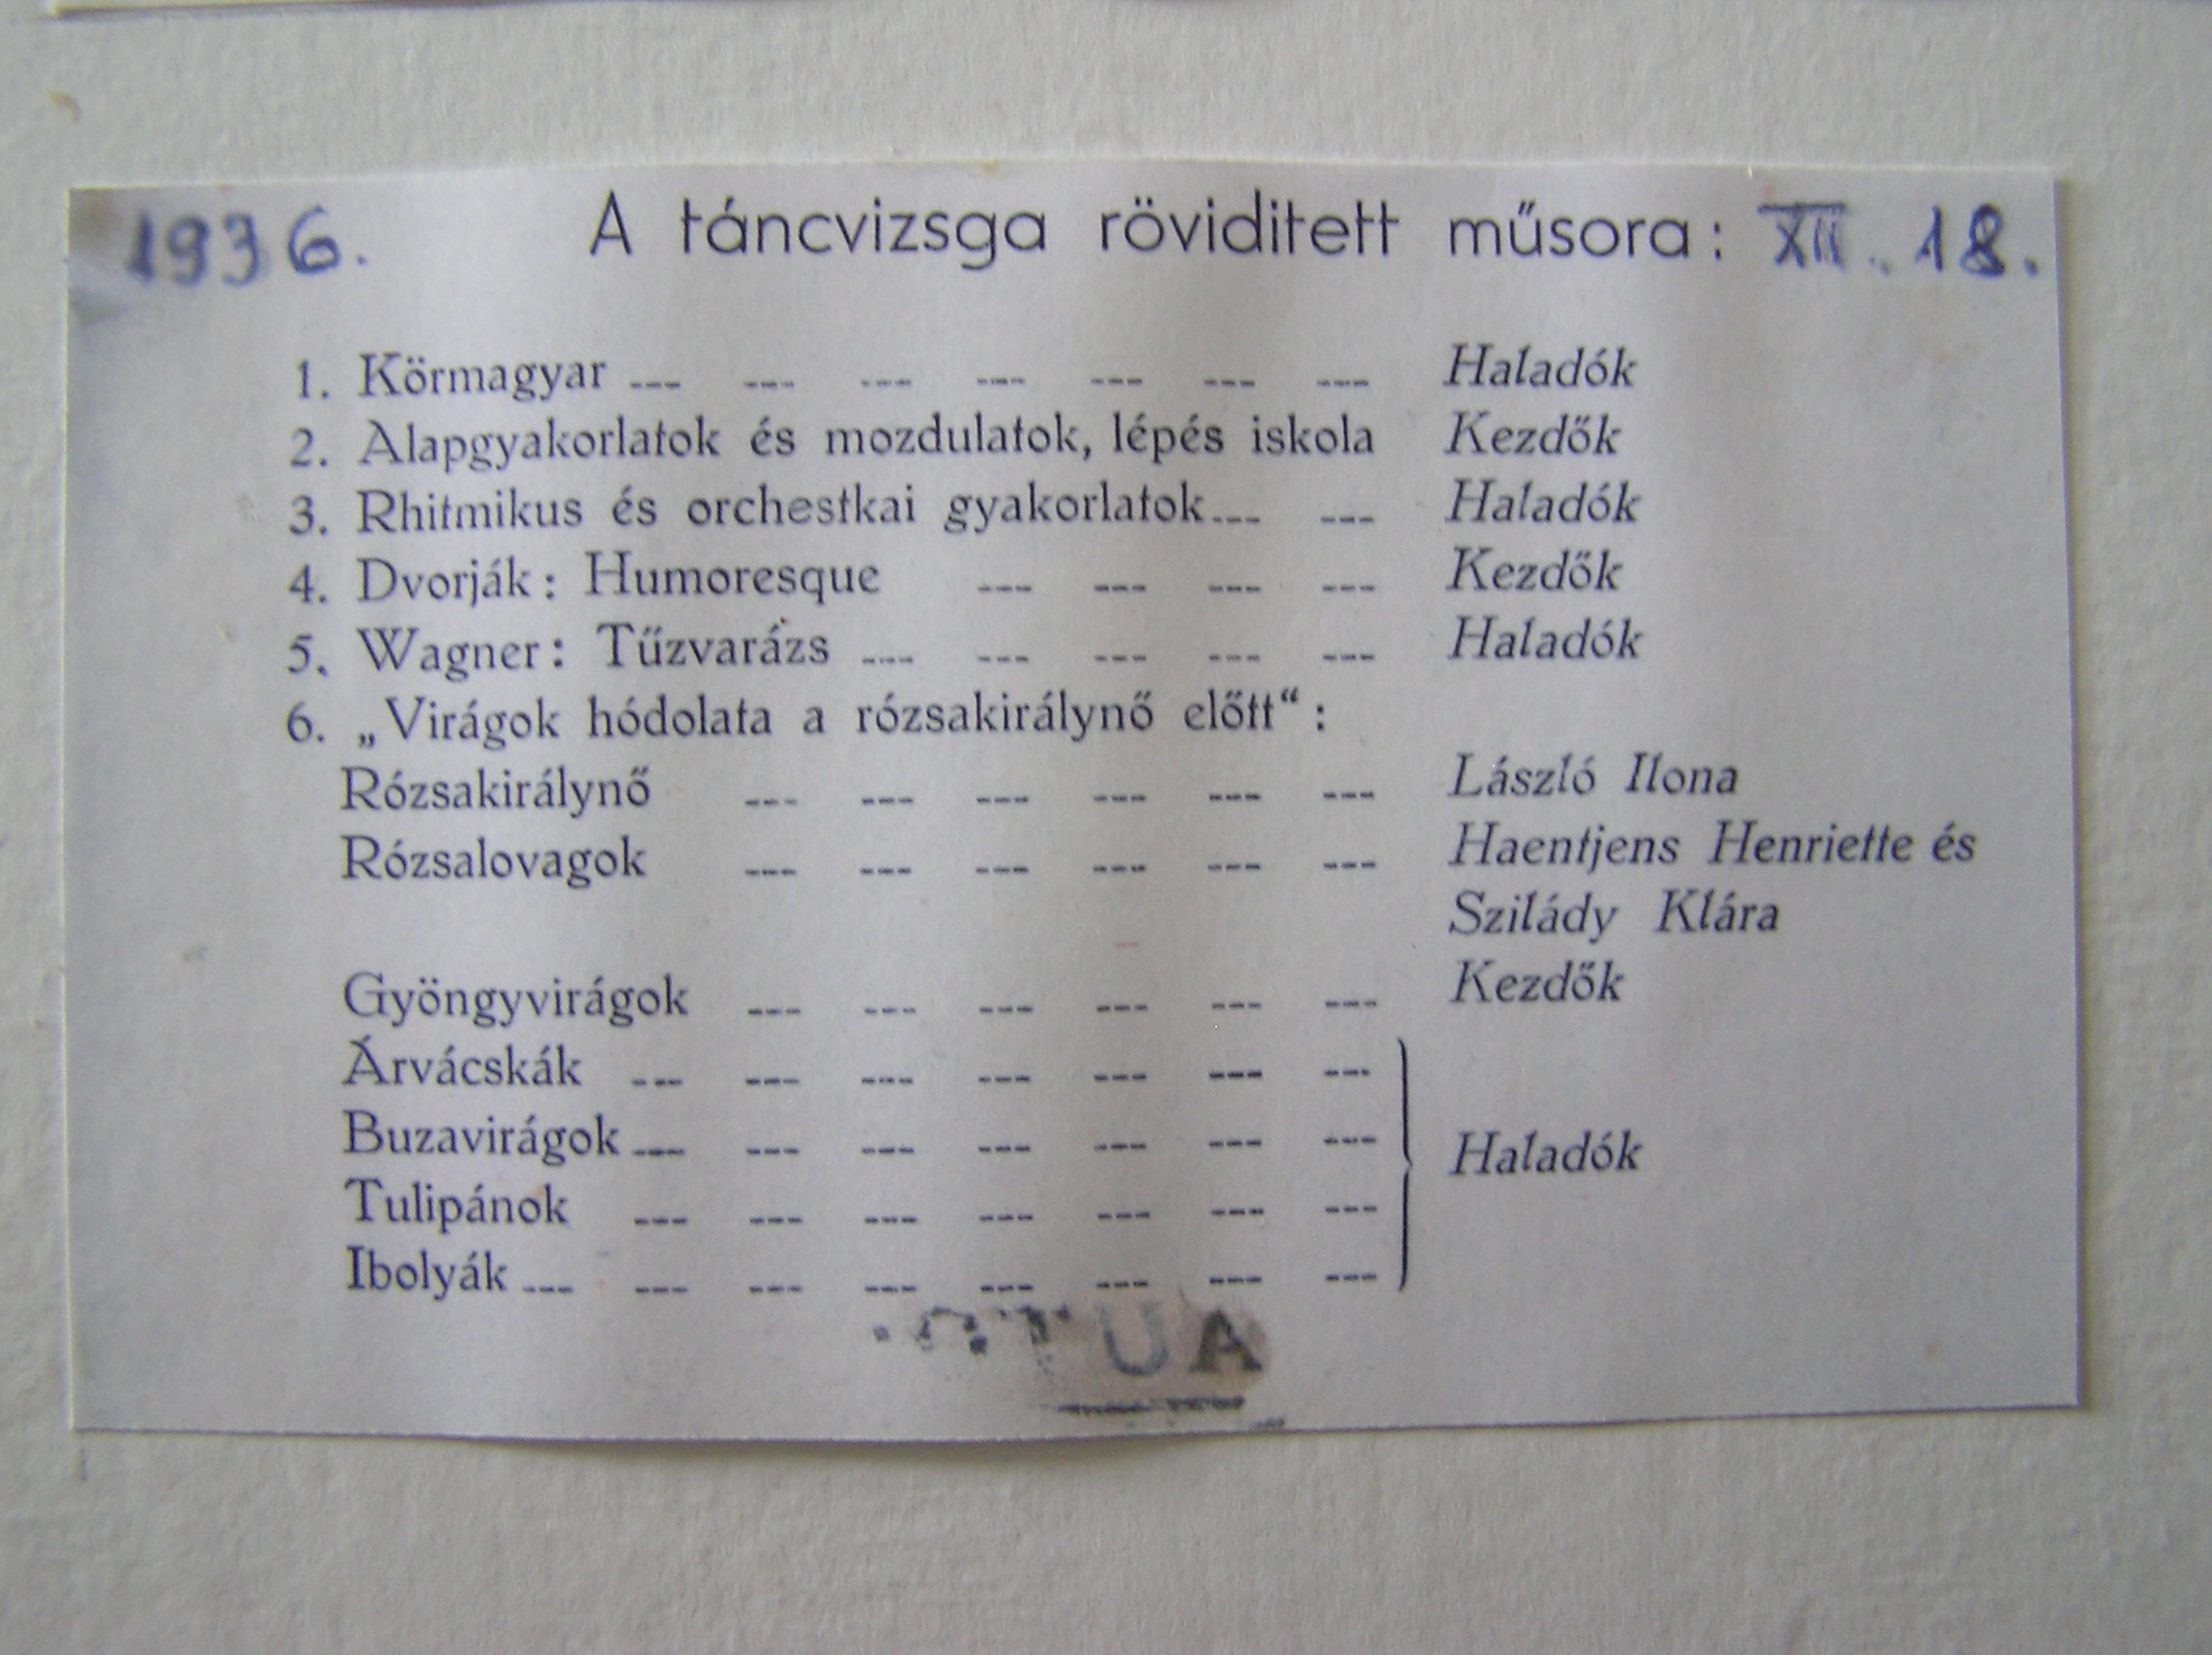 1936. A táncvizsga röviditett műsora: XII. 18.
1. Körmagyar --- --- --- --- --- --- --- Haladók
2. Alapgyakorlatok és mozdulatok, lépés iskola Kezdők
3. Rhitmikus és orchestkai gyakorlatok --- --- Haladók
4. Dvorják: Humoresque --- --- --- --- Kezdők
5. Wagner: Tűzvarázs --- --- --- --- --- Haladók
6. „Virágok hódolata a rózsakirálynő előtt“:
Rózsakirálynő --- --- --- --- --- --- László Ilona
Rózsalovagok --- --- --- --- --- --- Haentjens Henriette és
Szilády Klára
Gyöngyvirágok --- --- --- --- --- --- Kezdők
Árvácskák --- --- --- --- --- --- ---
Buzavirágok --- --- --- --- --- --- --- Haladók
Tulipánok --- --- --- --- --- --- ---
Ibolyák --- --- --- --- --- --- --- ---